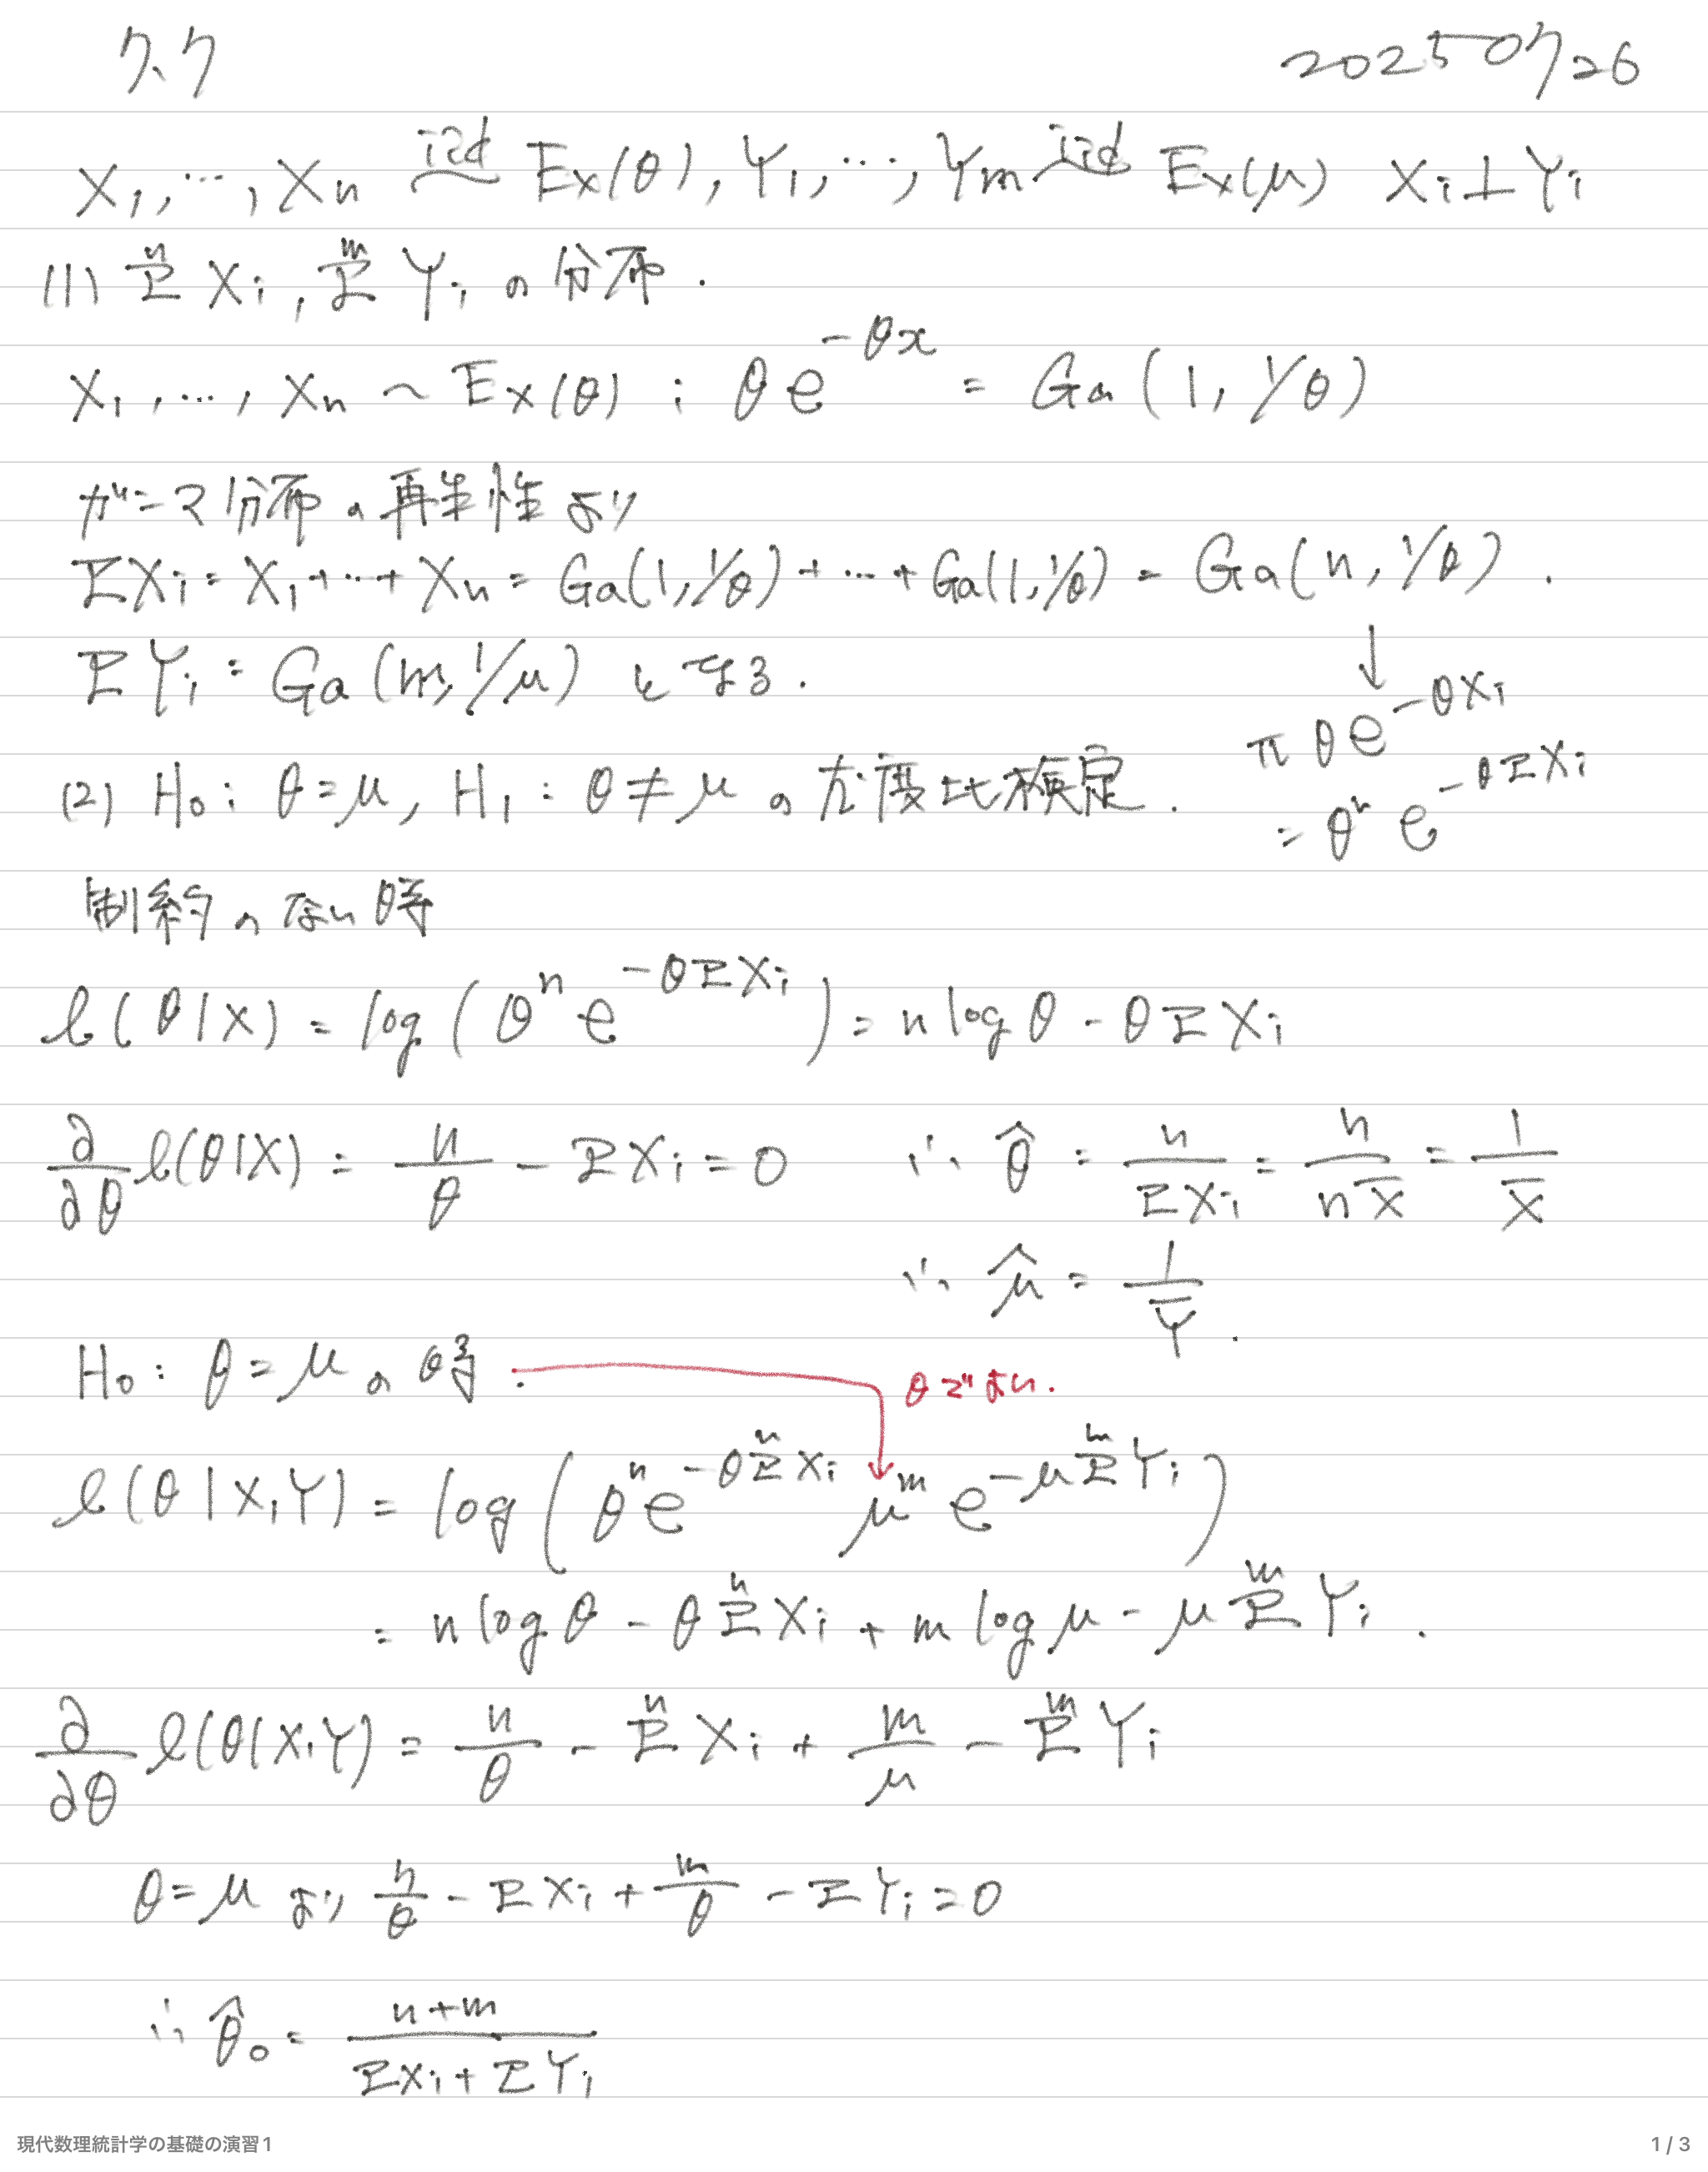 7.7 20250726
X₁, …, Xₙ iid~ Ex(θ), Y₁, …, Yₘ iid~ Ex(μ) Xᵢ⊥Yᵢ
(1) Σⁿ Xᵢ, Σᵐ Yᵢ の分布.
X₁, …, Xₙ ~ Ex(θ) : θe^{-θx} = Ga(1, 1/θ)
ガンマ分布の再生性より
ΣXᵢ = X₁+…+Xₙ = Ga(1, 1/θ)+…+Ga(1, 1/θ) = Ga(n, 1/θ).
ΣYᵢ = Ga(m, 1/μ) となる.
↓
π θe^{-θXᵢ}
= θⁿ e^{-θΣXᵢ}
(2) H₀: θ=μ, H₁: θ≠μ の尤度比検定.
制約のない時
l(θ|X) = log(θⁿ e^{-θΣXᵢ}) = n log θ - θΣXᵢ
∂/∂θ l(θ|X) = n/θ - ΣXᵢ = 0 ∴ θ̂ = n/ΣXᵢ = n/nX̄ = 1/X̄
∴ μ̂ = 1/Ȳ.
H₀: θ=μ の時.
θでよい.
l(θ|X,Y) = log(θⁿ e^{-θΣⁿXᵢ} μᵐ e^{-μΣᵐYᵢ})
= n log θ - θ Σⁿ Xᵢ + m log μ - μ Σᵐ Yᵢ.
∂/∂θ l(θ|X,Y) = n/θ - Σⁿ Xᵢ + m/μ - Σᵐ Yᵢ
θ=μ より n/θ - ΣXᵢ + m/θ - ΣYᵢ = 0
∴ θ̂₀ = (n+m)/(ΣXᵢ+ΣYᵢ)
現代数理統計学の基礎の演習1
1 / 3